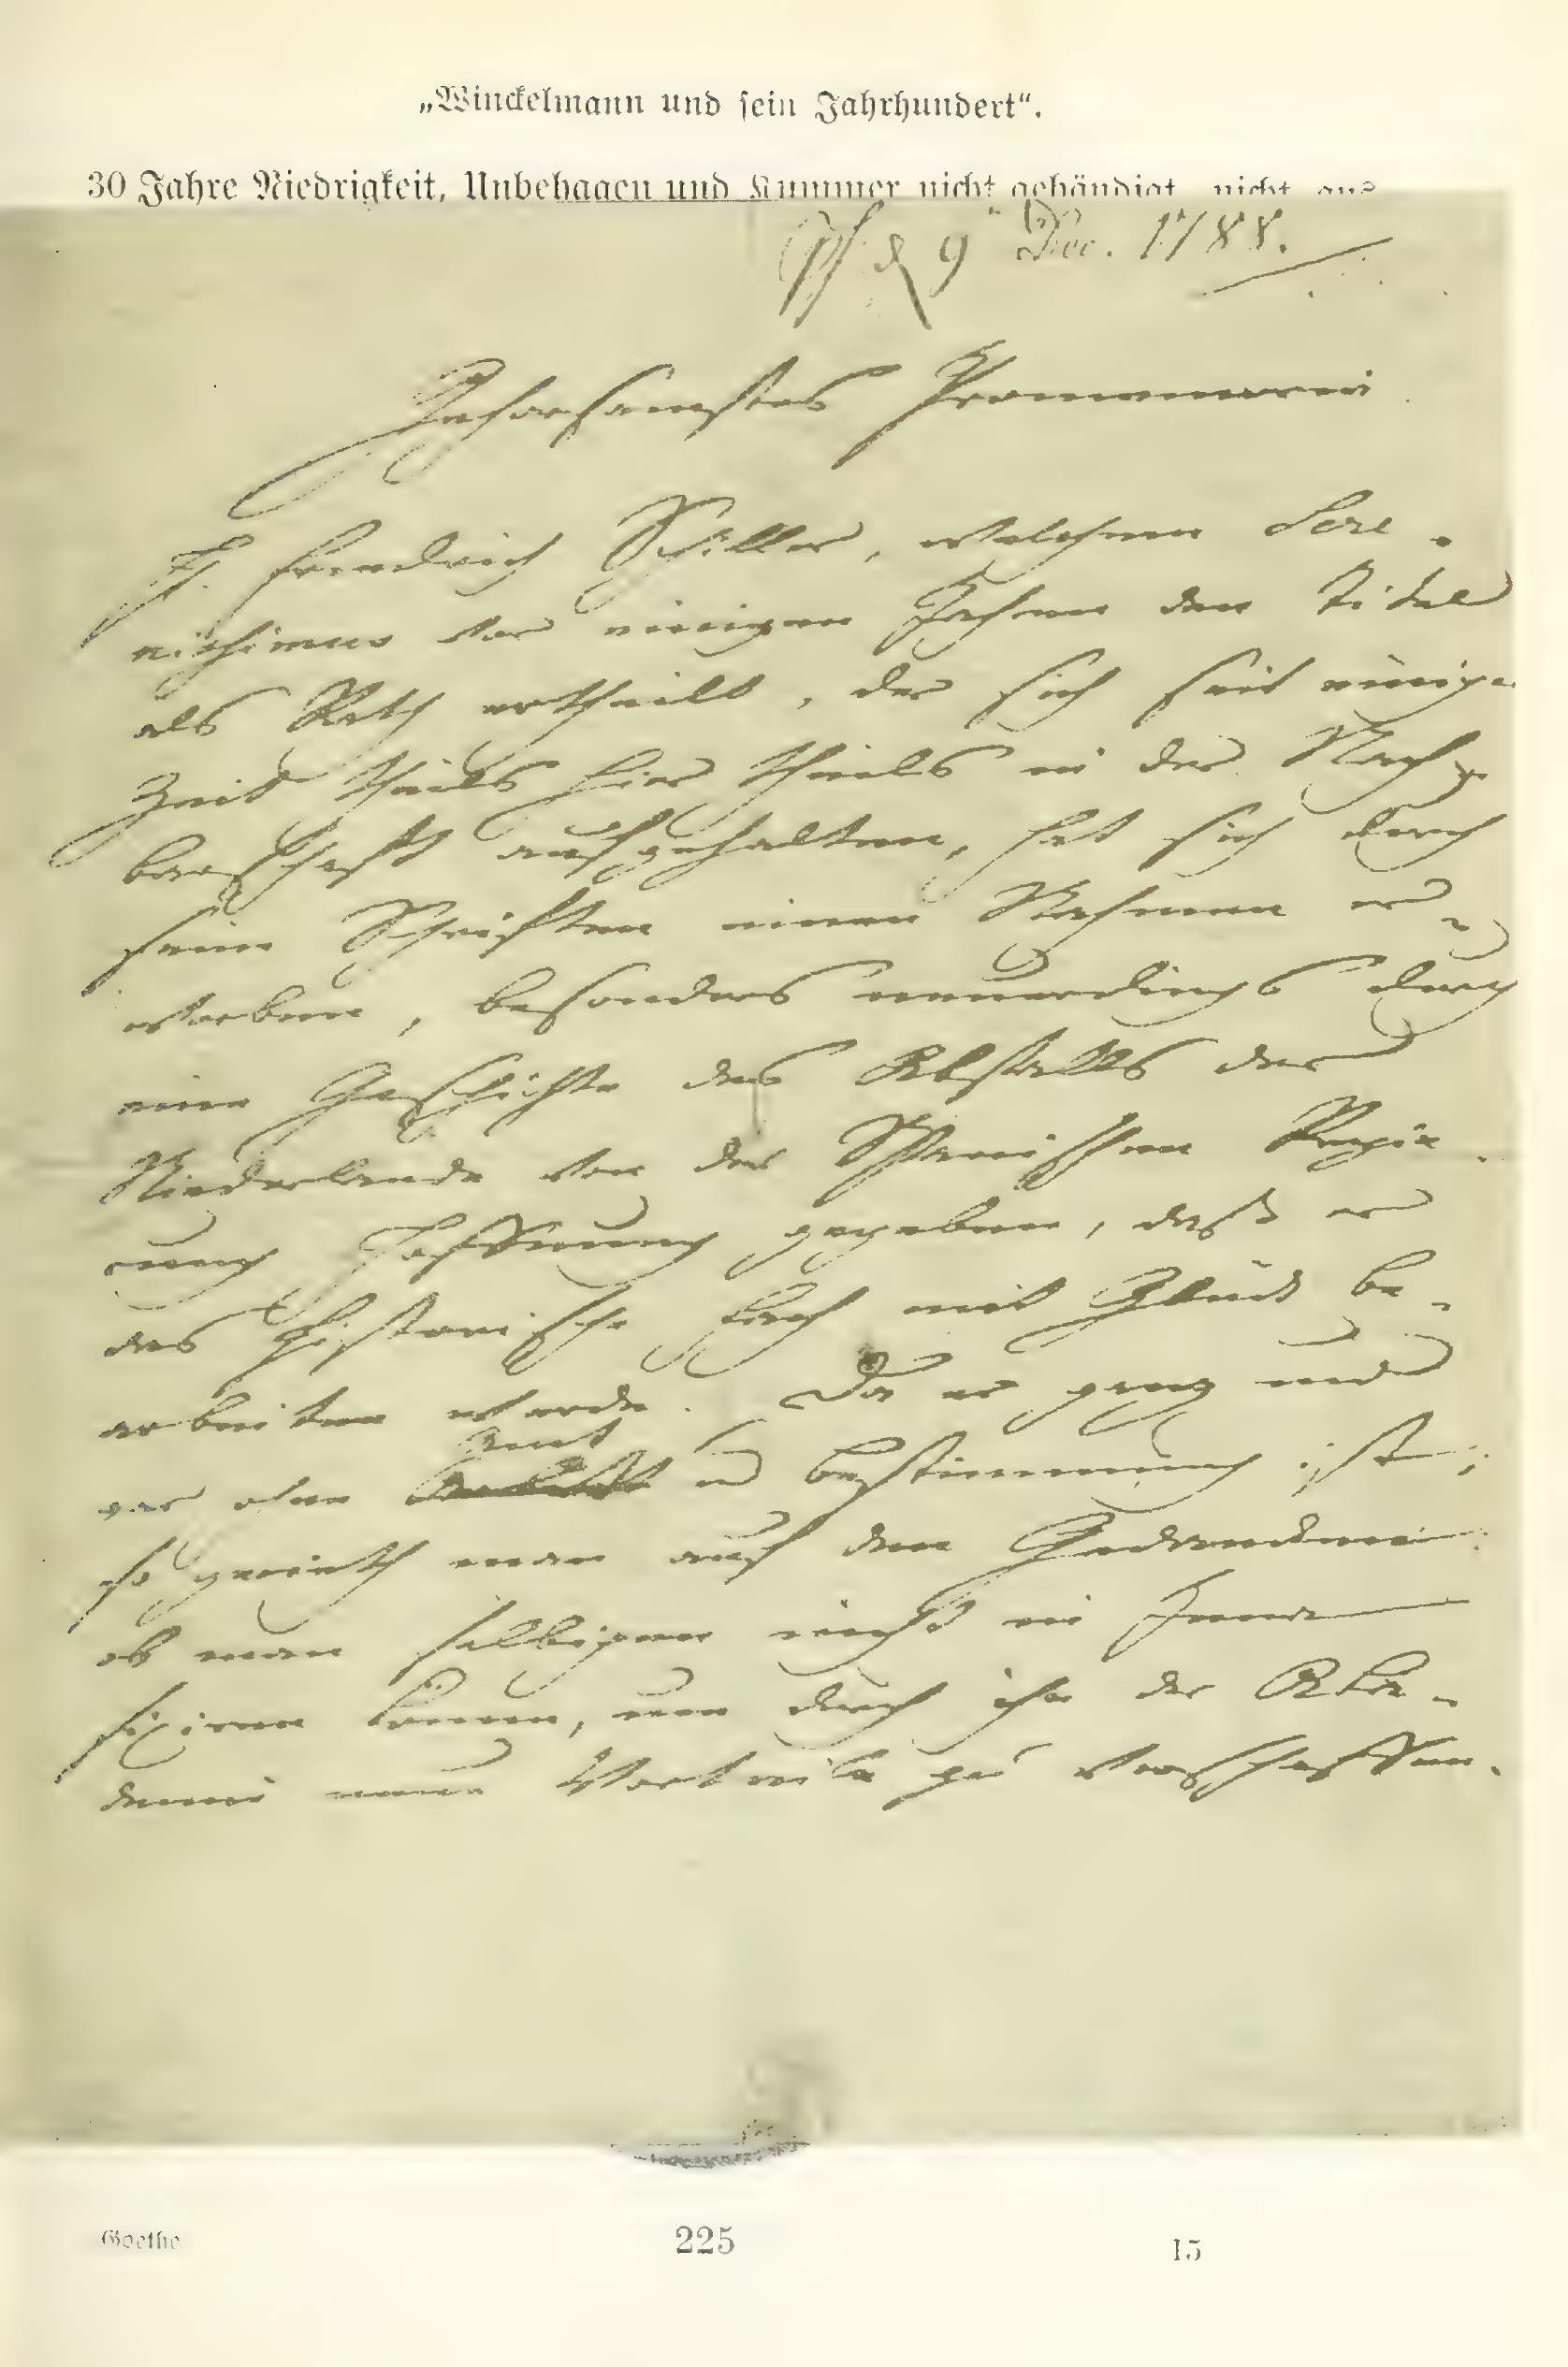 „Winckelmann und sein Jahrhundert“.
30 Jahre Niedrigkeit, Unbehagen und Kummer nicht gebändigt, nicht aus
9 Dec. 1788.
Gehorsamstes Promemoria
H. Friedrich Schiller, welchem Sere-
nissimus vor einigen Jahren den Titel
als Rath ertheilt, der sich seit einiger
Zeit theils hier theils in der Nach-
barschaft aufgehalten, hat sich durch
seine Schriften einen Nahmen er-
worben, besonders neuerdings durch
eine Geschichte des Abfalls der
Niederlande von der Spanischen Regie-
rung Hoffnung gegeben, daß er
das historische Fach mit Glück be-
arbeiten werde. Da er ganz und
Amt
gar ohne u Bestimmung ist;
so gerieth man auf den Gedancken:
ob man selbigen nicht in Jena
fixiren könne, um durch ihn der Aka-
demie neue Vortheile zu verschaffen.
Goethe 225 15